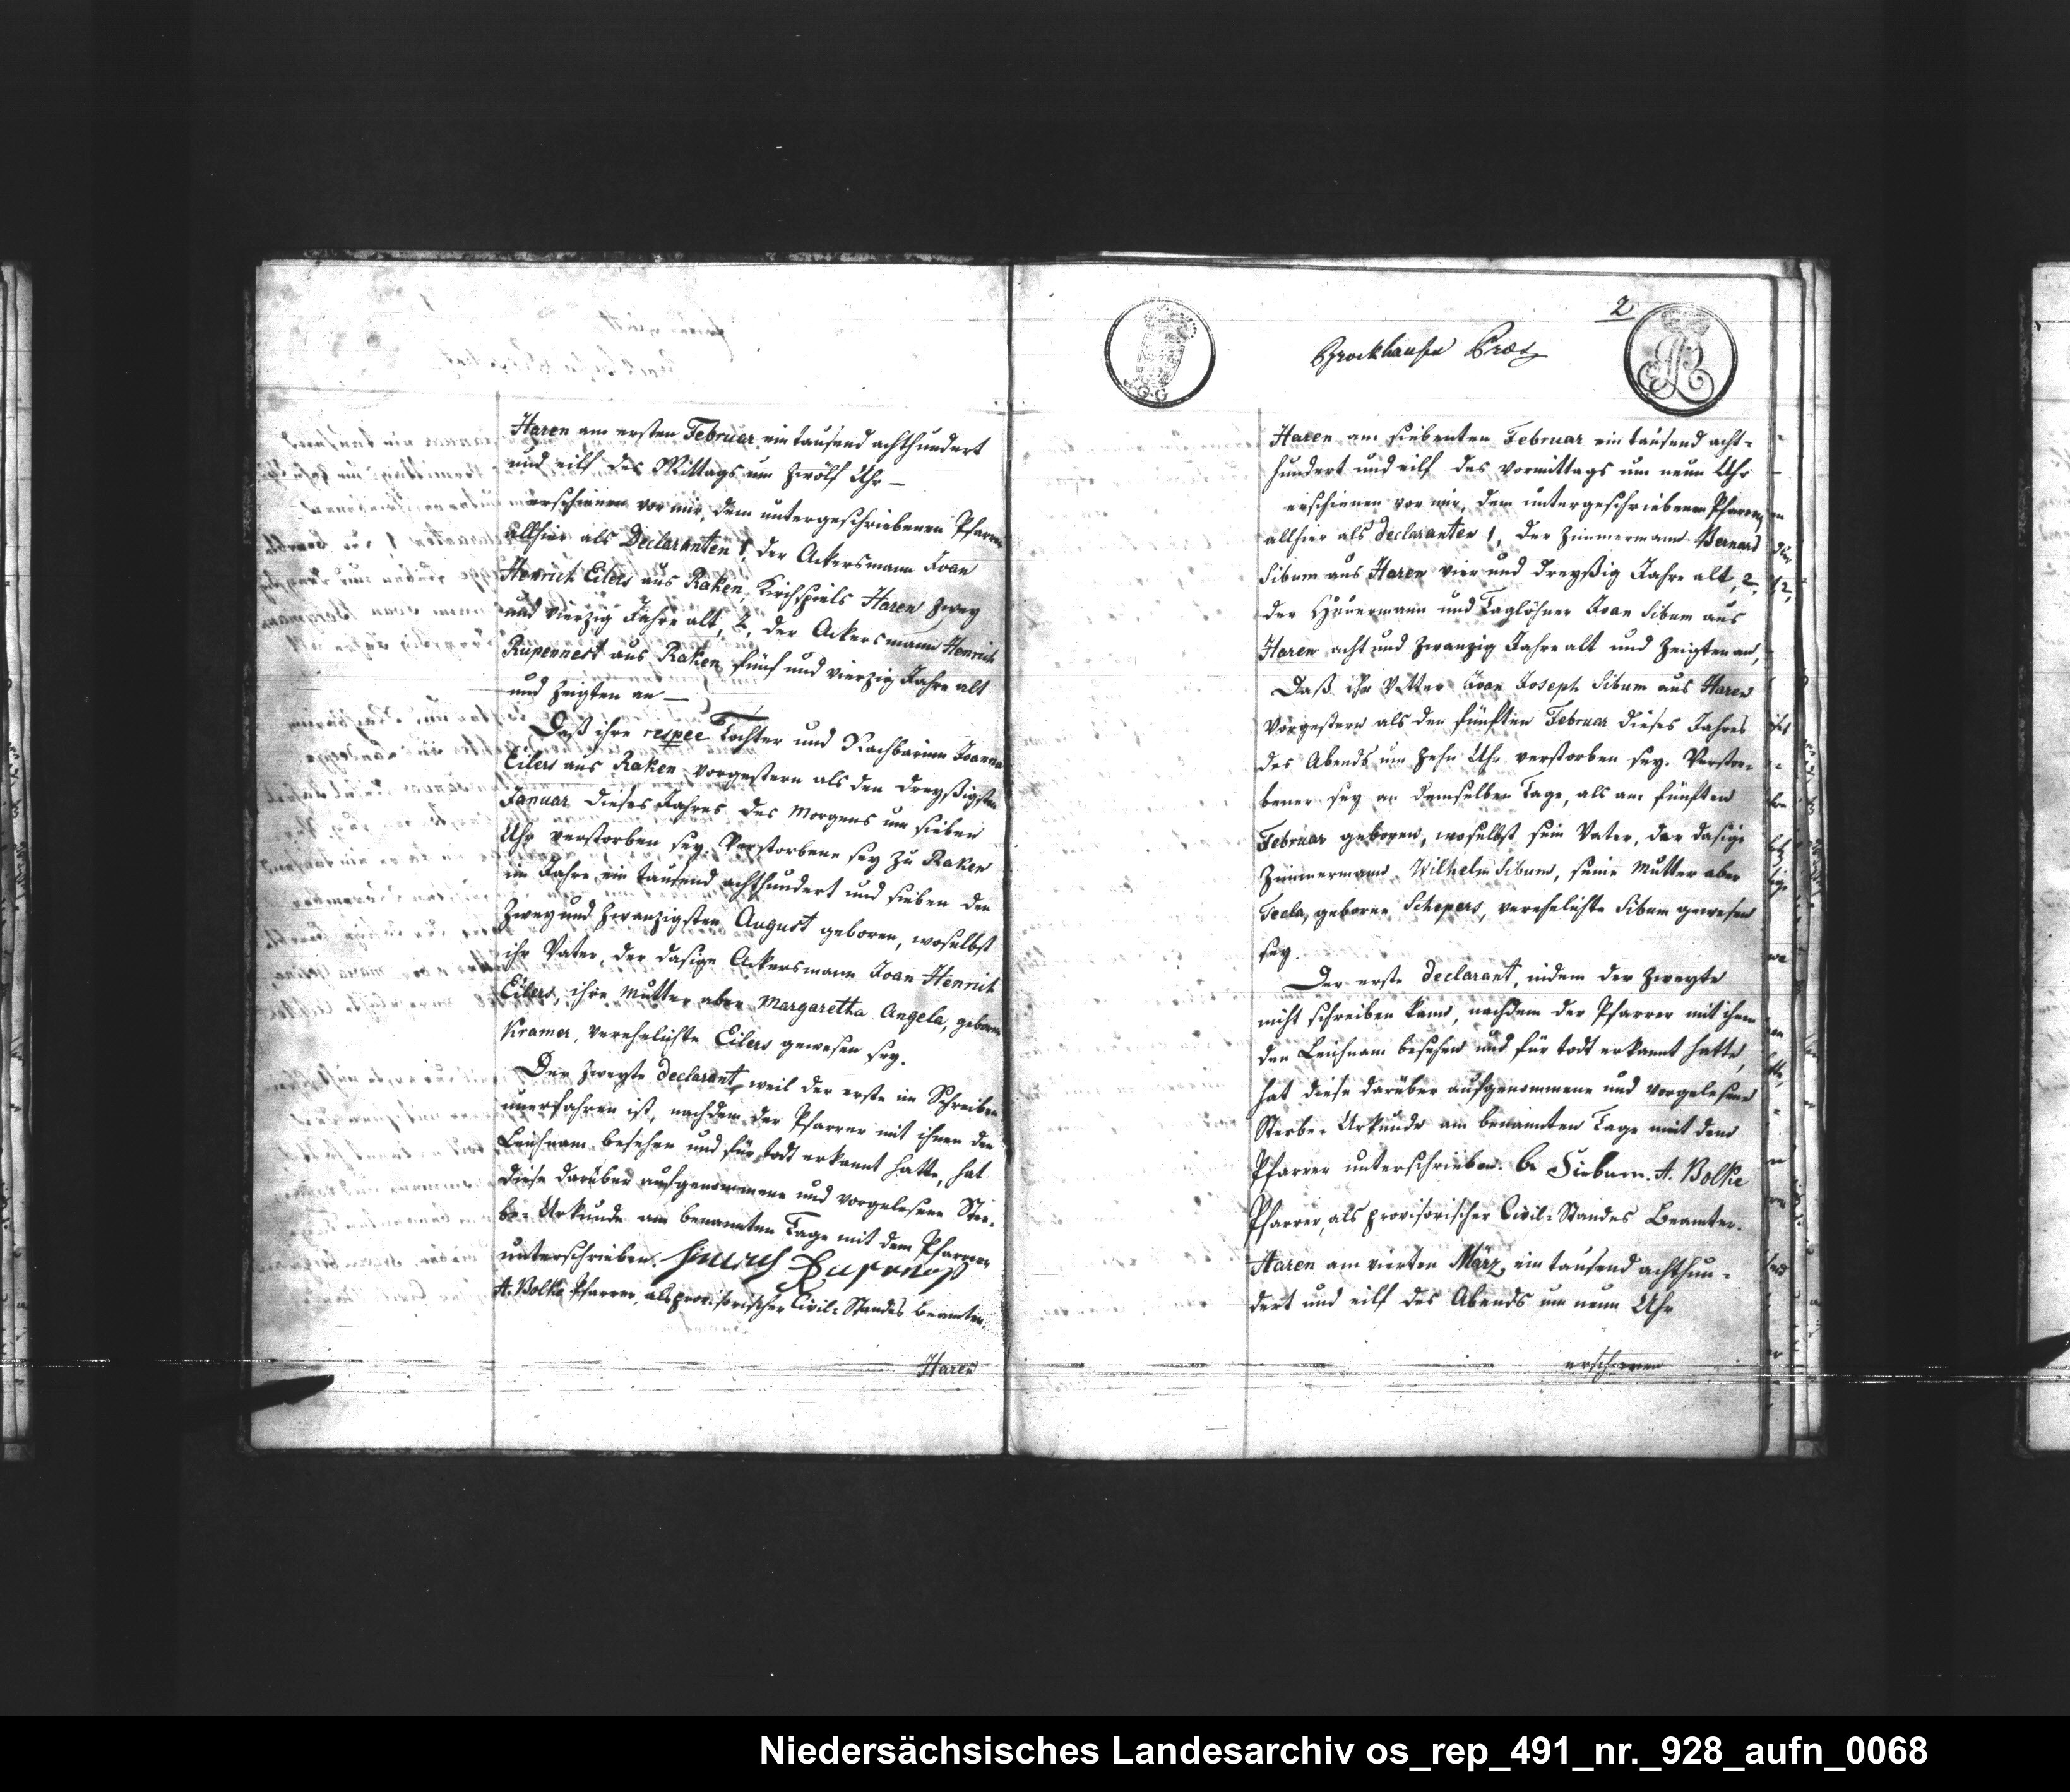 Haren am ersten Februar ein tausend achthundert
und eilf des Mittags um zwölf Uhr —
erschienen vor mir, dem untergeschriebenen Pfarrer
allhier als Declaranten 1, der Ackersmann Joan
Henrich Eilers aus Raken, Kirchspiels Haren zwey
und vierzig Jahre alt, 2, der Ackersmann Henrich
Rupennest aus Raken fünf und vierzig Jahre alt
und zeigten an —
Daß ihre respee Tochter und Nachbarinn Joanna
Eilers aus Raken vorgestern als den dreyßigsten
Januar dieses Jahres des Morgens um sieben
Uhr verstorben sey. Verstorbene sey zu Raken
im Jahre ein tausend achthundert und sieben den
zwey und zwanzigsten August geboren, woselbst
ihr Vater, der dasige Ackersmann Joan Henrich
Eilers, ihre Mutter aber Margaretha Angela, geborne
Kramer, verehelichte Eilers gewesen sey.
Der zweyte declarant, weil der erste im Schreiben
unerfahren ist, nachdem der Pfarrer mit ihnen den
Leichnam besehen und für todt erkannt hatte, hat
diese darüber aufgenommene und vorgelesene Ster-
be-Urkunde am benannten Tage mit dem Pfarrer
unterschrieben. Hinrich
A. Bolke Pfarrer, als provisorischer Civil-Standes Beamter.
Haren
2
Brockhausen Præs
G.G
Haren am siebenten Februar ein tausend acht-
hundert und eilf des Vormittags um neun Uhr
erschienen vor mir, dem untergeschriebenen Pfarrer
allhier als declaranten 1, der Zimmermann Bernard
Sibum aus Haren vier und dreyßig Jahre alt, 2,
der Heuermann und Taglöhner Joan Sibum aus
Haren acht und zwanzig Jahre alt und zeigten an,
Daß ihr Vetter Joan Joseph Sibum aus Haren
vorgestern als den fünften Februar dieses Jahres
des Abends um zehn Uhr verstorben sey. Verstor-
bener sey an demselben Tage, als am fünften
Februar geboren, woselbst sein Vater, der dasige
Zimmermann Wilhelm Sibum, seine Mutter aber
Tecla, geborne Schepers, verehelichte Sibum gewesen
sey.
Der erste declarant, indem der zweyte
nicht schreiben kann, nachdem der Pfarrer mit ihnen
den Leichnam besehen und für todt erkannt hatte,
hat diese darüber aufgenommene und vorgelesene
Sterbe-Urkunde am benannten Tage mit dem
Pfarrer unterschrieben. B Siebum. A. Bolke
Pfarrer, als provisorischer Civil-Standes Beamter.
Haren am vierten März ein tausend achthun-
dert und eilf des Abends um neun Uhr
erschienen
Niedersächsisches Landesarchiv os_rep_491_nr._928_aufn_0068